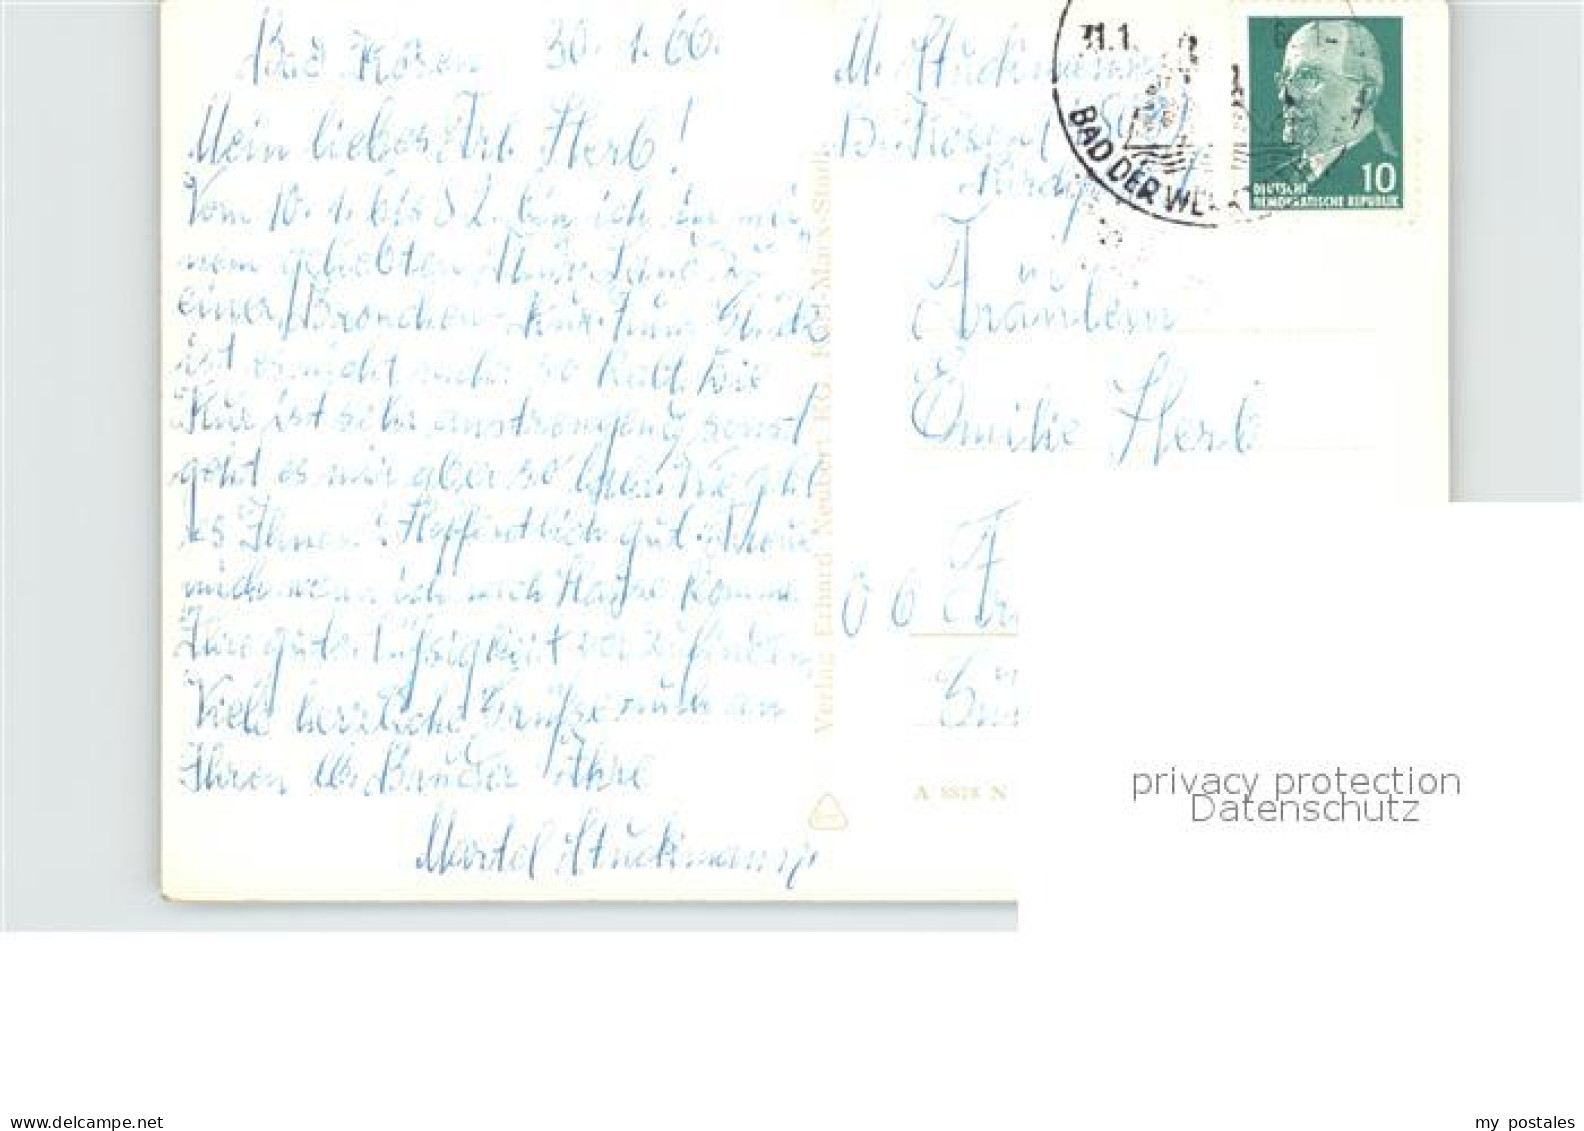 Bad Kösen 30.1.66.
Mein liebes Frl. Herb!
Vom 10.1. bis 8.2. bin ich in mei
nem geliebten zu
einer Bronchen-Kur. Zum Glück
ist es nicht mehr so kalt. Die
Kur ist sehr anstrengend sonst
geht es mir aber so Wie geht
es Ihnen? Hoffentlich gut.
mich wenn ich nach Hause komme
Ihre guten vorzufinden,
Viele herzliche Grüße auch an
Ihren lb. Bruder Ihre
Martel Stuckmann
Verlag Erhard Neubert KG, Karl-Marx-Stadt
M. Stuckmann
31.1.
BAD DER
10
DEUTSCHE
DEMOKRATISCHE REPUBLIK
Fräulein
Emilie Herb
A 5578 N
privacy protection
Datenschutz
www.delcampe.net
my postales